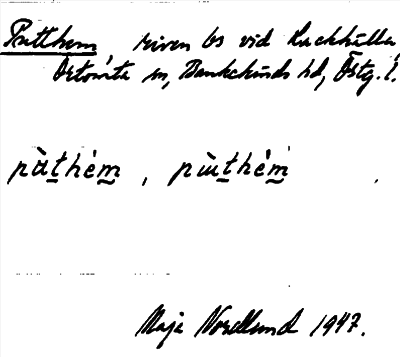 Putthem riven bs vid Kuckhälla,
Örtomta sn, Bankekinds hd, Östg. l.
pùt̲hém̲, pùt̲hém̲
Maja Nordlund 1947.